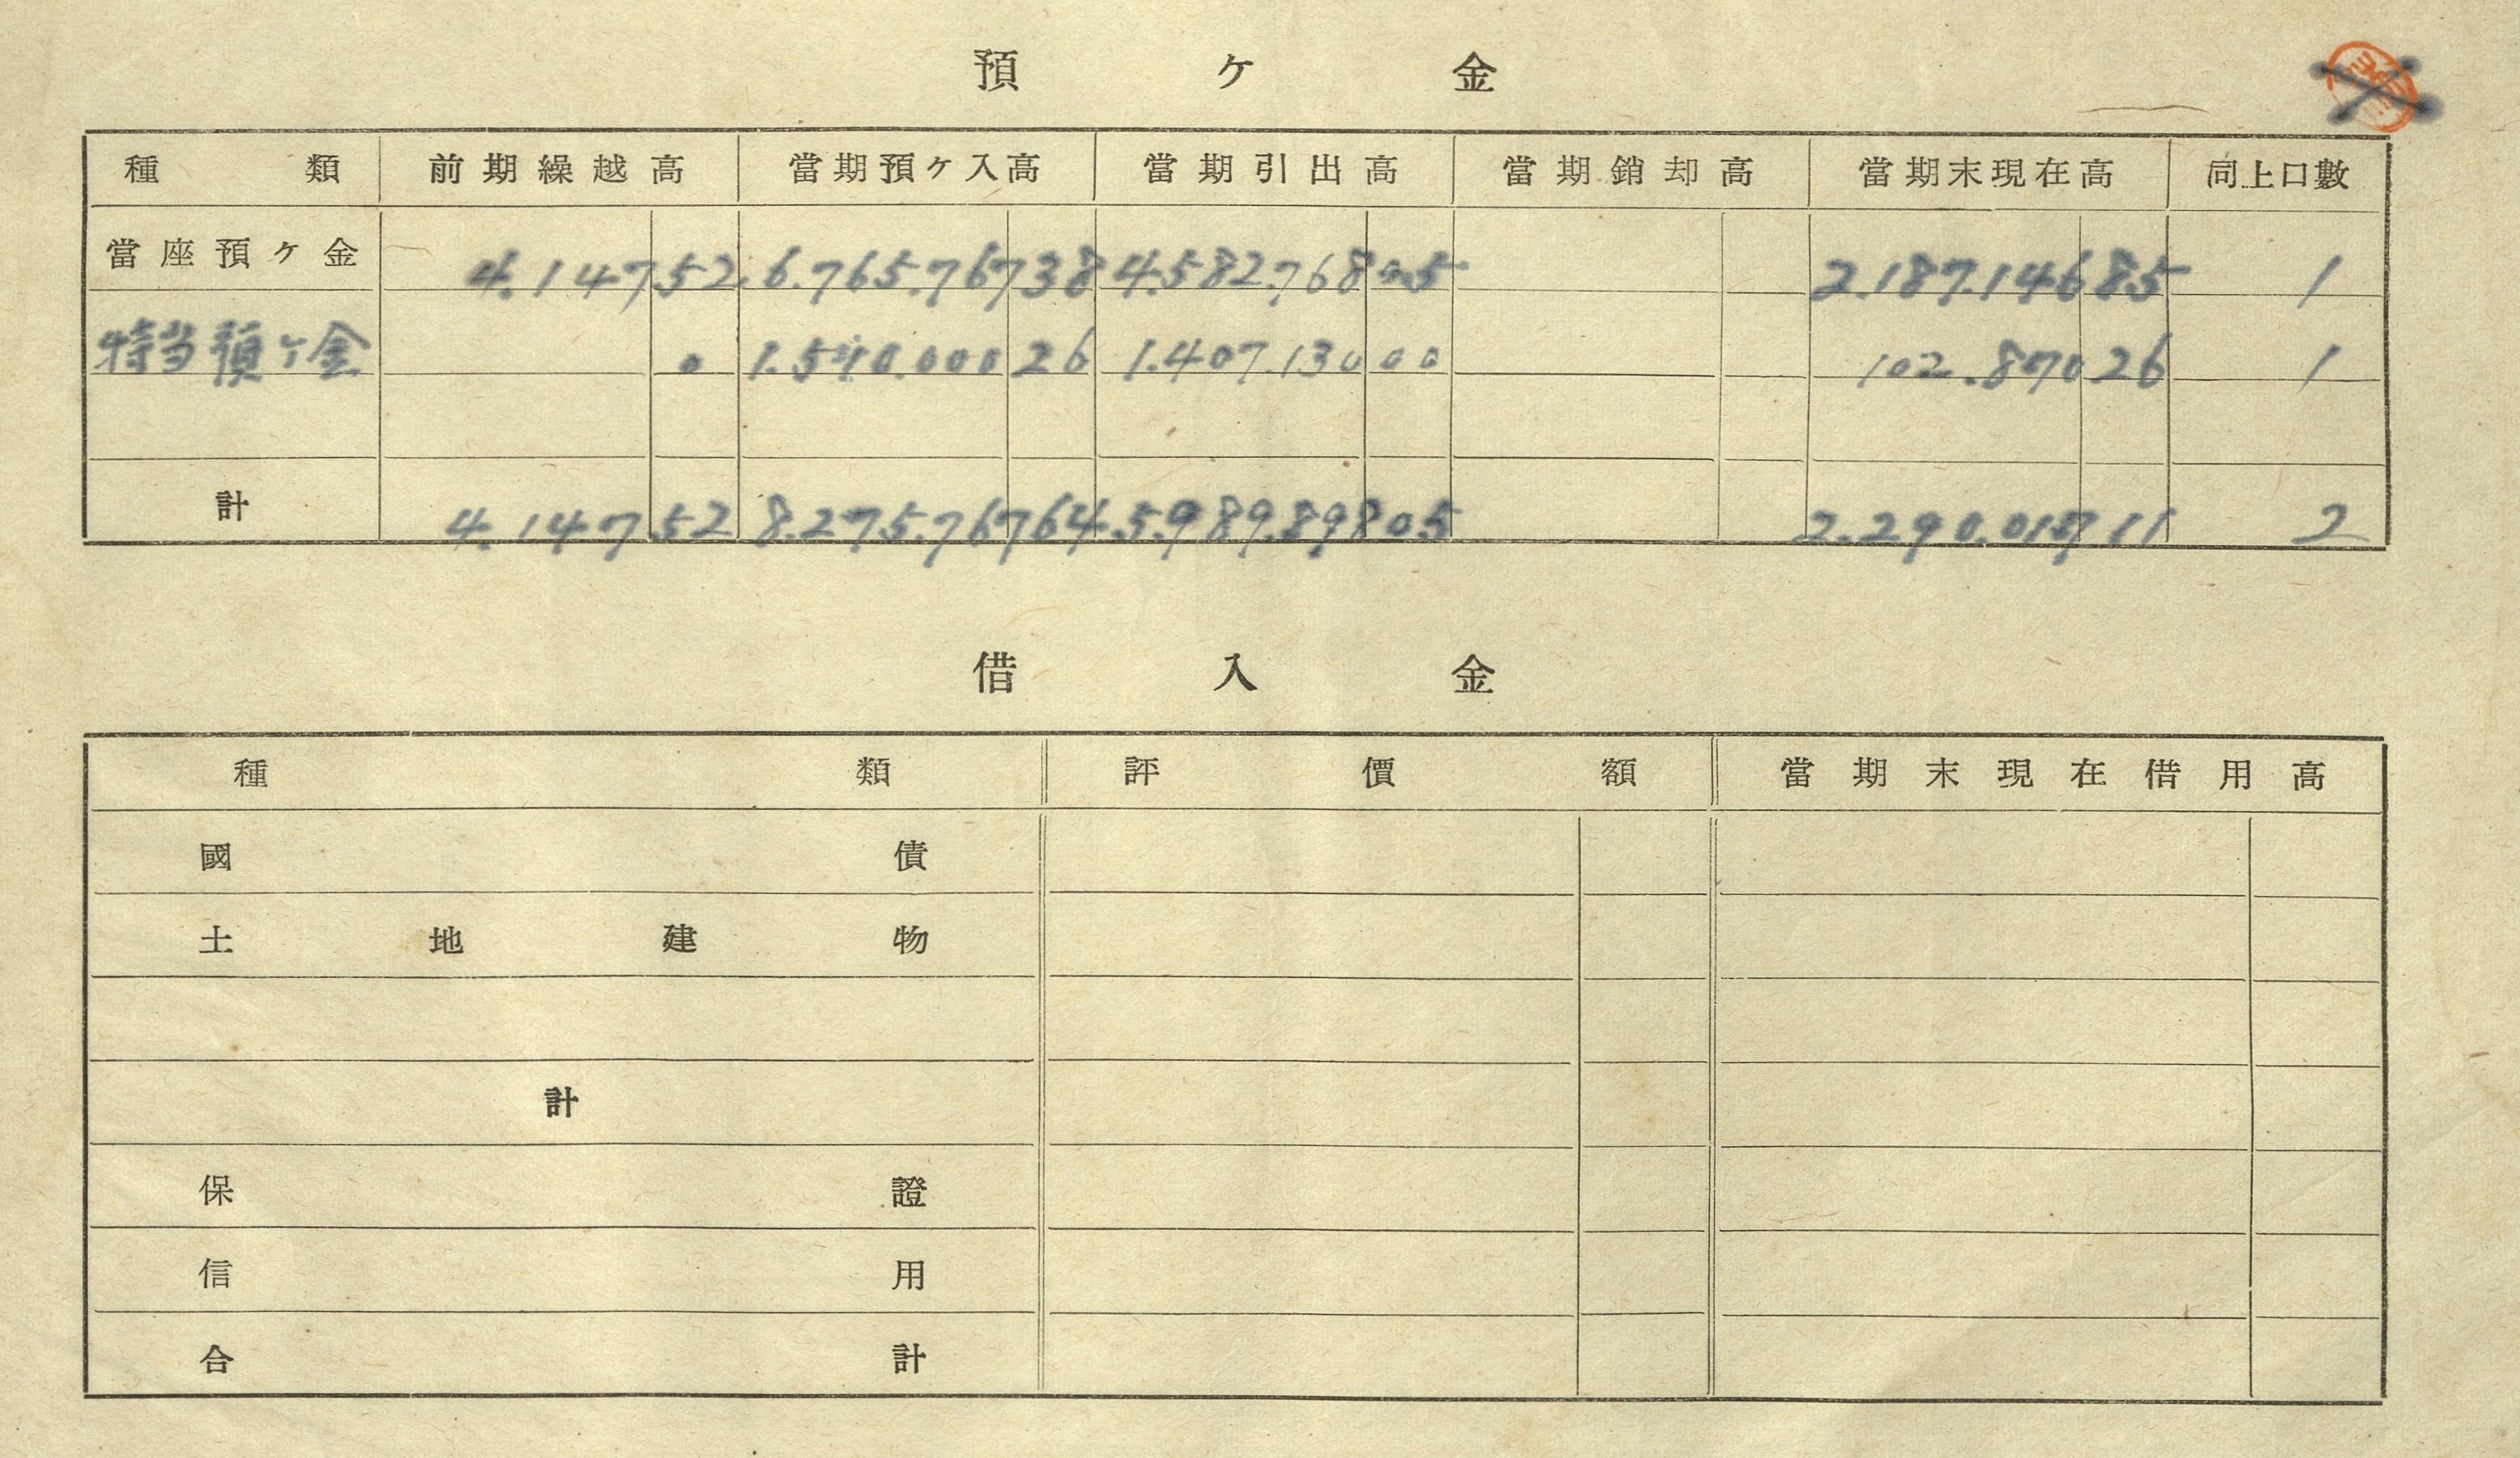 預ケ金
種類 前期繰越高 當期預ケ入高 當期引出高 當期銷却高 當期末現在高 同上口數
當座預ケ金 4.147 52 6.765.767 38 4.582.768 05 2.187.146 85 1
特当預ケ金 0 1.510.000 26 1.407.130 00 102.870 26 1
計 4.147 52 8.275.767 64 5.989.898 05 2.290.017 11 2
借入金
種類 評價額 當期末現在借用高
國債
土地建物
計
保證
信用
合計